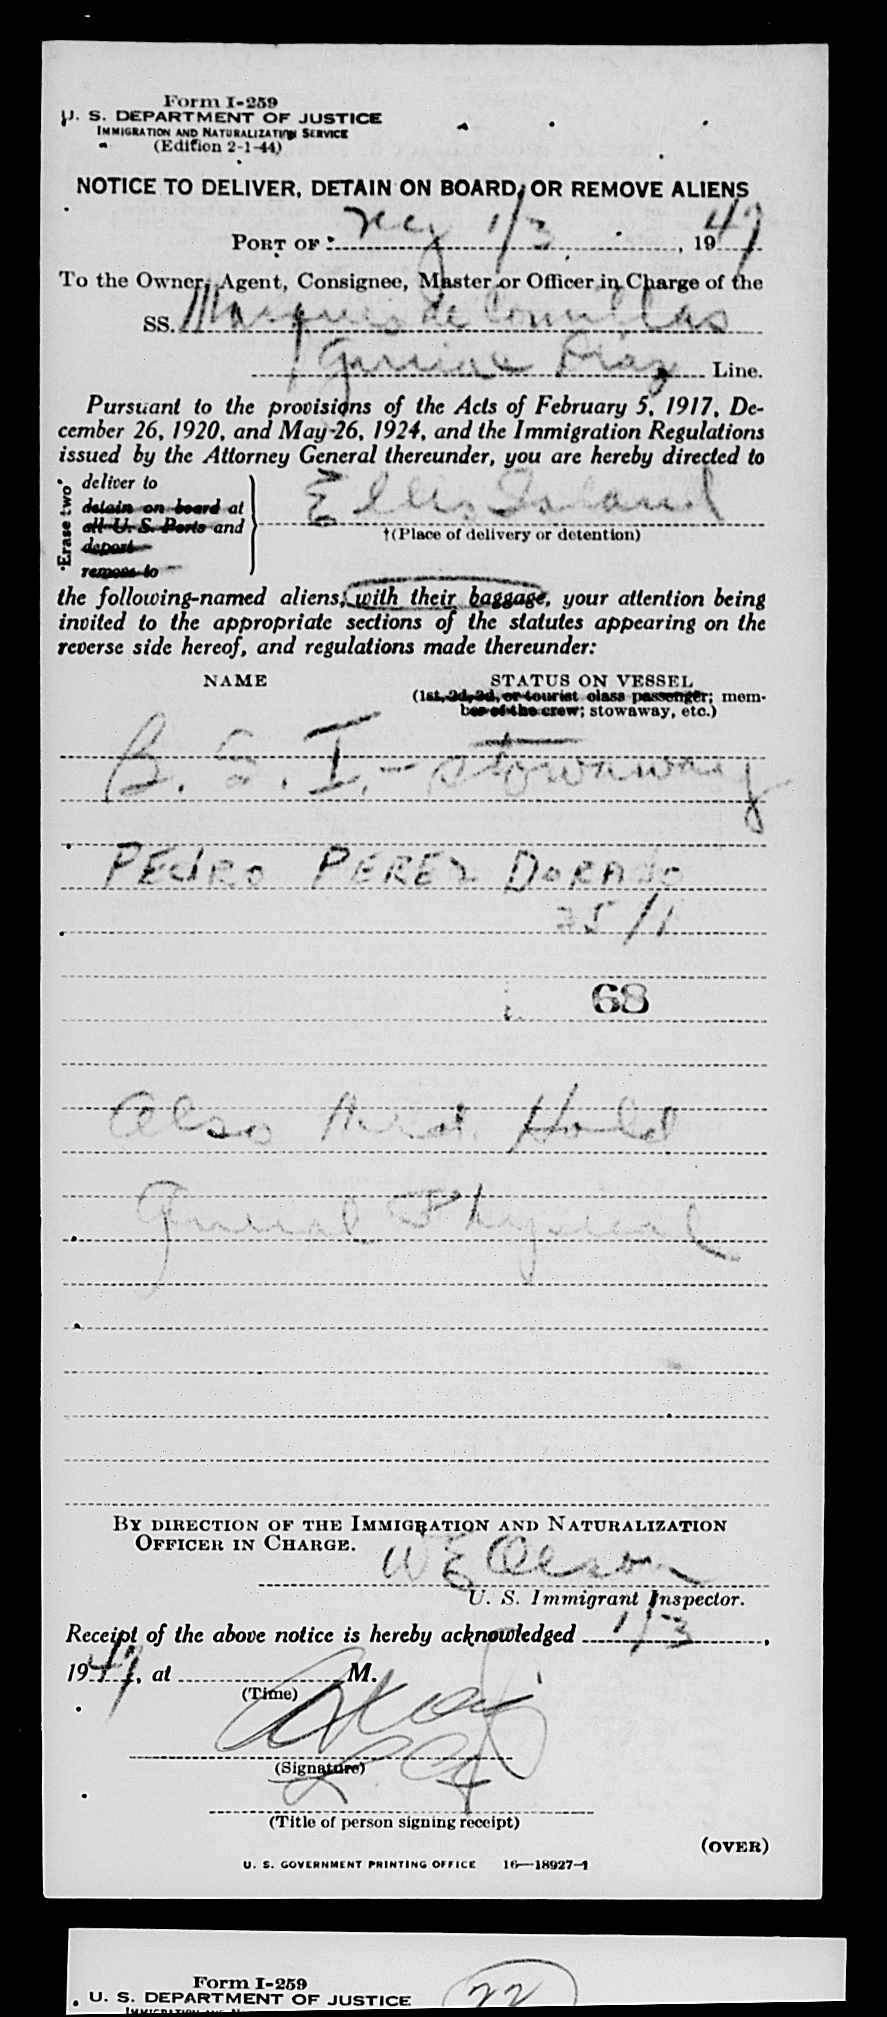 Form I-259
U. S. DEPARTMENT OF JUSTICE
IMMIGRATION AND NATURALIZATION SERVICE
(Edition 2-1-44)
NOTICE TO DELIVER, DETAIN ON BOARD, OR REMOVE ALIENS
PORT OF NY 1/3, 1947
To the Owner, Agent, Consignee, Master or Officer in Charge of the
SS. Marques de Comillas
Garcia & Diaz Line.
Pursuant to the provisions of the Acts of February 5, 1917, De-
cember 26, 1920, and May 26, 1924, and the Immigration Regulations
issued by the Attorney General thereunder, you are hereby directed to
*Erase two*
deliver to
detain on board at
all U. S. Ports and
deport
remove to
Ellis Island
†(Place of delivery or detention)
the following-named aliens, with their baggage, your attention being
invited to the appropriate sections of the statutes appearing on the
reverse side hereof, and regulations made thereunder:
NAME STATUS ON VESSEL
(1st, 2d, 3d, or tourist class passenger; mem-
ber of the crew; stowaway, etc.)
B. S. I. - Stowaway
PEdRO PEREZ DORADO
25/1
68
Also Med. Hold
General Physical
BY DIRECTION OF THE IMMIGRATION AND NATURALIZATION
OFFICER IN CHARGE.
W E Olson
U. S. Immigrant Inspector.
Receipt of the above notice is hereby acknowledged 1/3,
1947, at M.
(Time)
(Signature)
(Title of person signing receipt)
(OVER)
U. S. GOVERNMENT PRINTING OFFICE 16—18927-1
Form I-259
22
U. S. DEPARTMENT OF JUSTICE